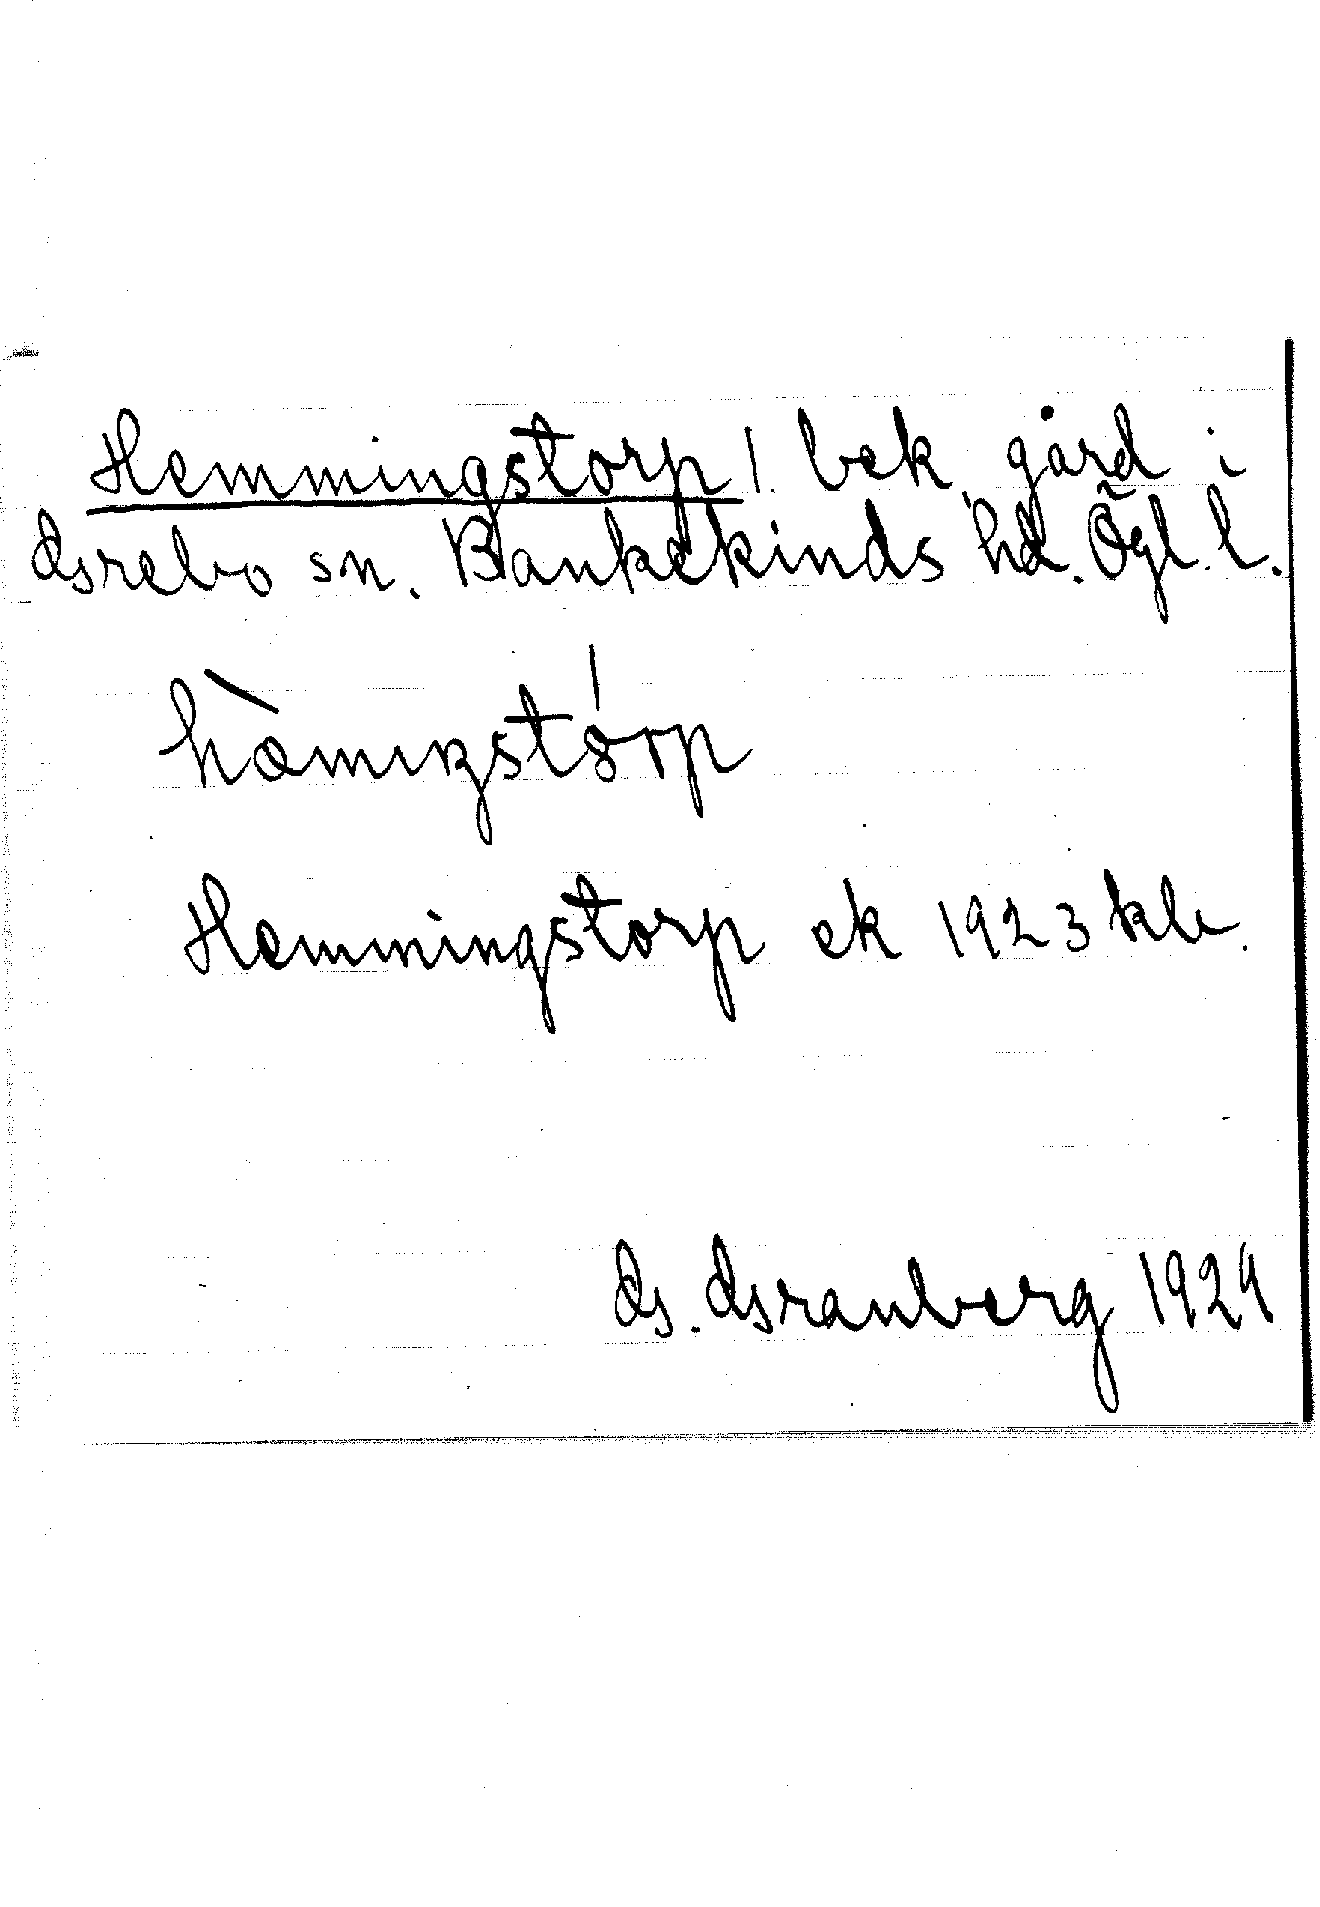 Hemmingstorp! bek gård i
Grebo sn. Bankekinds hd. Ögl. l.
Hemmingstorp ek 1923 kb.
G. Granberg 1929